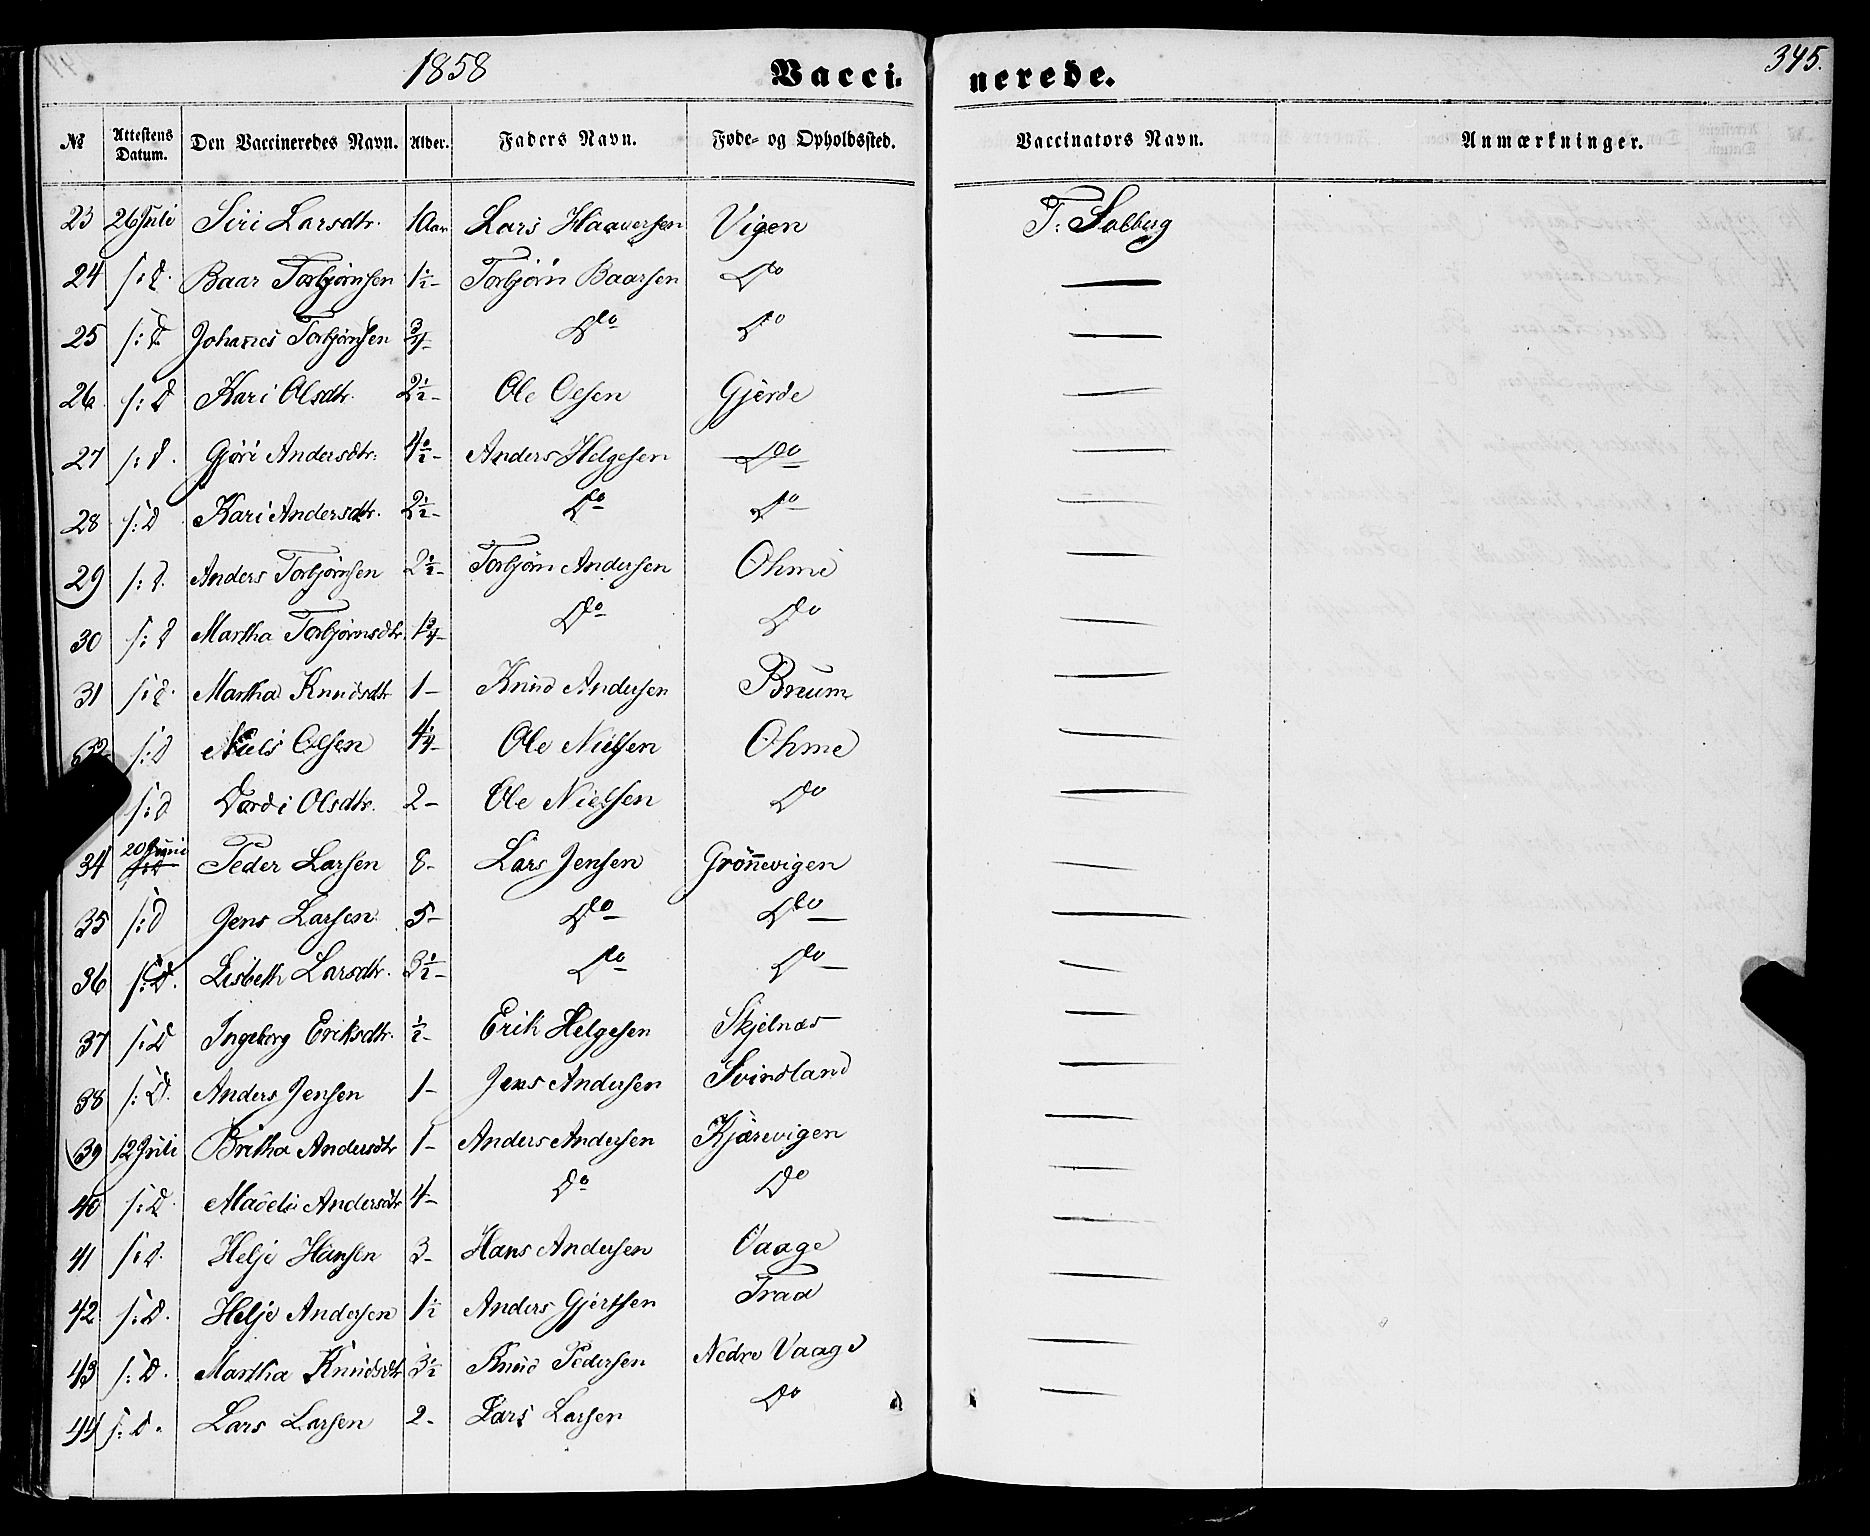 1858 Vacci- nerede. 345.
№ Attestens Datum. Den Vaccineredes Navn. Alder. Faders Navn. Føde- og Opholdssted. Vaccinators Navn. Anmærkninger.
23 26 Juli Siri Larsdtr. 10 aar Lars Haaversen Vigen T. Solberg
24 s: D. Baar Torbjørnsen 1½ - Torbjörn Baarsen Do —
25 s: D Johanes Torbjørnsen ¾ - Do Do —
26. s: D Kari Olsdtr. 2½ - Ole Olsen Gjerde —
27 s: D. Gjøri Andersdtr: 4½ - Anders Helgesen Do —
28 s: D Kari Andersdtr. 2½ - Do Do —
29 s: D. Anders Torbjörnsen 2½ - Torbjörn Andersen Ohme —
30 s: D Martha Torbjörnsdtr 1¾ - Do Do —
31 s: D. Martha Knudsdtr 1 - Knud Andersen Breum —
32 s: D Niels Olsen 4¼ - Ole Nielsen Ohme —
s: D Vordi Olsdtr. 2 - Ole Nielsen Do —
34 20 Juni Peder Larsen 8 - Lars Jensen Grönnevigen —
35 s: D Jens Larsen 5 - Do Do —
36 s: D. Lisbeth Larsdtr. 3½ - Do Do —
37 s: D Ingeborg Eriksdtr. ½ - Erik Helgesen Skjelnæs —
38 s: D. Anders Jensen 1 - Jens Andersen Svindland —
39 12 Juli Britha Andersdtr 1 - Anders Andersen Kjärevigen —
40 s: D. Madeli Andersdtr 4 - Do Do —
41 s: D. Helje Hansen 3 - Hans Andersen Vaage —
42 s: D. Helje Andersen 1½ Anders Gjertsen Traa —
43 s: D. Martha Knudsdtr 3½ Knud Pedersen Nedre Vaage —
44 s: D. Lars Larsen 2 - Lars Larsen Do —